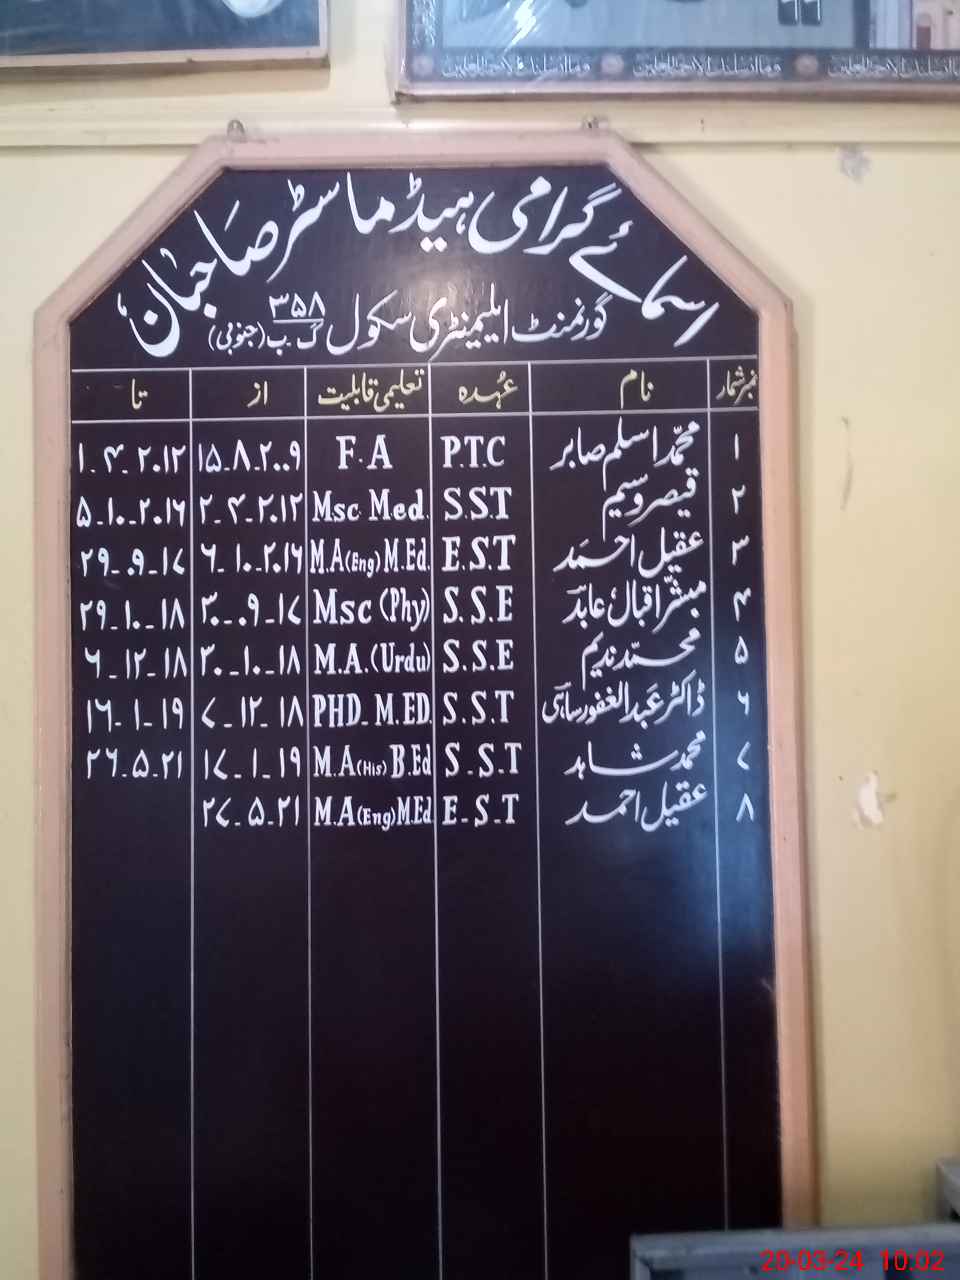 وما ارسلنك الا رحمة للعالمین وما ارسلنك الا رحمة للعالمین
اسمائے گرامی ہیڈ ماسٹر صاحبان
گورنمنٹ ایلیمنٹری سکول ۳۵۸ گ ب (جنوبی)
نمبر شمار نام عُہدہ تعلیمی قابلیت از تا
۱ محمّد اسلم صابر P.T.C F.A ۱۵_۸_۲۰۰۹ ۱_۴_۲۰۱۲
۲ قیصر وسیم S.S.T Msc. Med. ۲_۴_۲۰۱۲ ۵_۱۰_۲۰۱۶
۳ عقیل احمد E.S.T M.A(Eng) M.Ed. ۶_۱۰_۲۰۱۶ ۲۹_۰۹_۱۷
۴ مبشّر اقبال عابد S.S.E Msc (Phy) ۳۰_۰۹_۱۷ ۲۹_۱۰_۱۸
۵ محمّد ندیم S.S.E M.A.(Urdu) ۳۰_۱۰_۱۸ ۶_۱۲_۱۸
۶ ڈاکٹر عبدالغفور ساہی S.S.T PHD_M.ED ۷_۱۲_۱۸ ۱۶_۱_۱۹
۷ محمد شاہد S.S.T M.A(His) B.Ed ۱۷_۱_۱۹ ۲۶_۵_۲۱
۸ عقیل احمد E.S.T M.A(Eng) M.Ed ۲۷_۵_۲۱
20-03-24 10:02